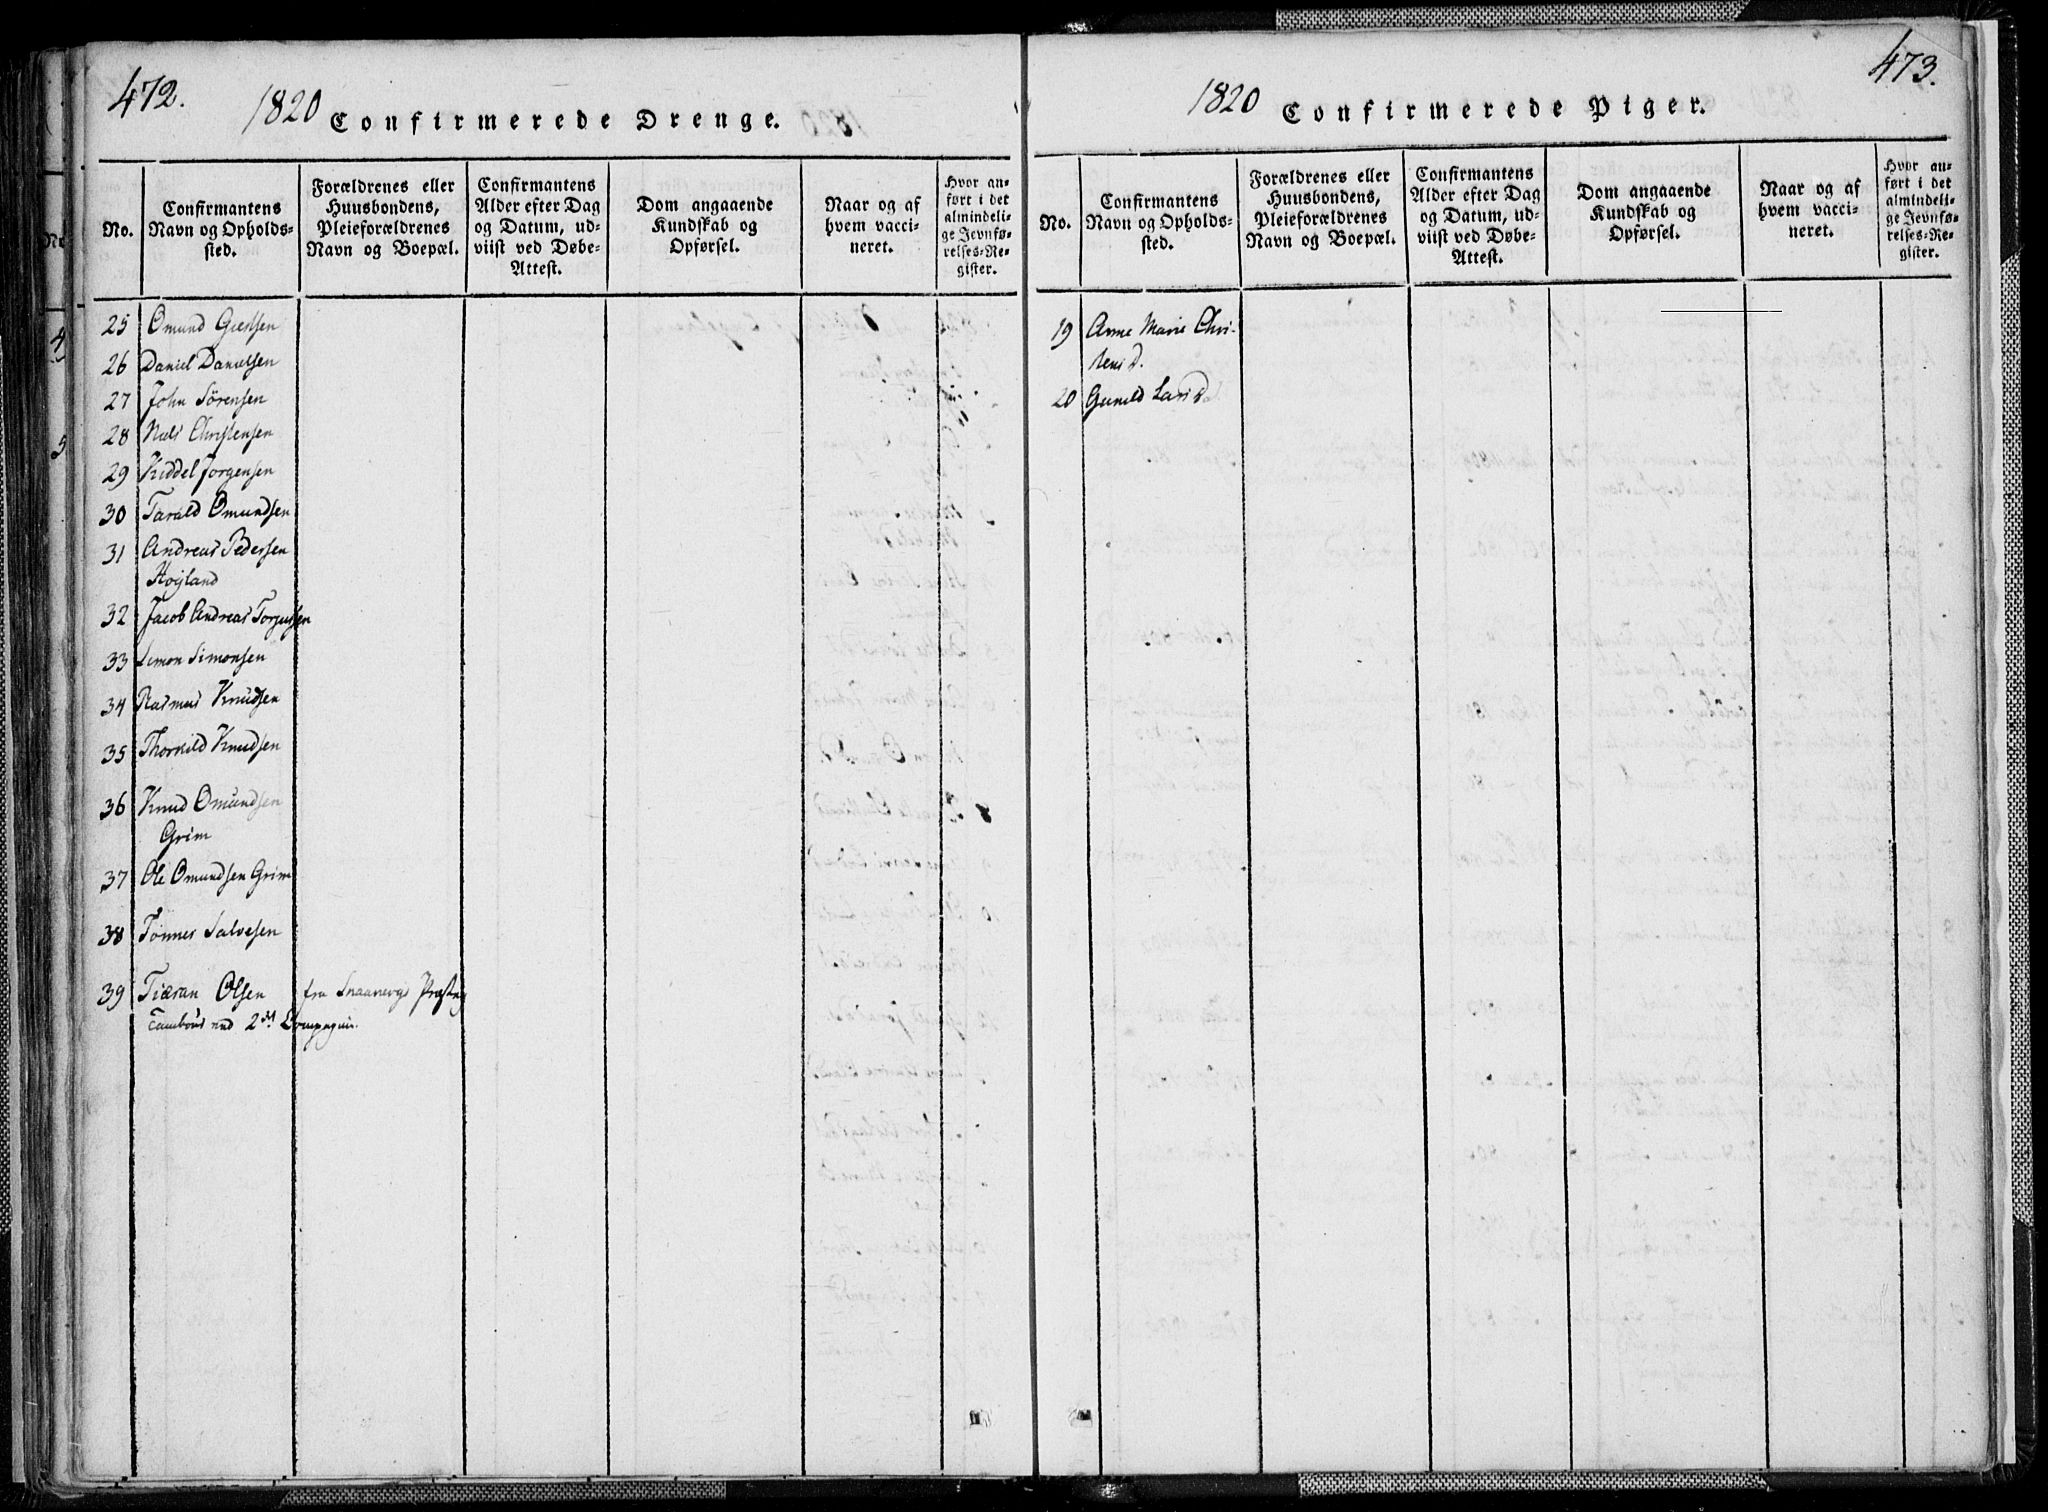 472.
1820 Confirmerede Drenge.
No.
Confirmantens
Navn og Opholds-
sted.
Forældrenes eller
Huusbondens,
Pleieforældrenes
Navn og Boepæl.
Confirmantens
Alder efter Dag
og Datum, ud-
viist ved Døbe-
Attest.
Dom angaaende
Kundskab og
Opførsel.
Naar og af
hvem vacci-
neret.
Hvor an-
ført i det
almindeli-
ge Jevnfø-
relses-Re-
gister.
25 Omund
26 Daniel Danielsen
27 John Sörensen
28 Niels Christensen
29 Kiddel Jorgensen
30 Tarald Omundsen
31 Andreas Pedersen
Høyland
32 Jacob Andreas Torjussen
33 Simon Simonsen
34 Rasmus Knudsen
35 Thorkild Knudsen
36 Knud Omundsen
Grim
37 Ole Omundsen Grim
38 Tönnes Salvesen
39 Tiæran Olsen fra
2det Compagnie.
473.
1820 Confirmerede Piger.
No.
Confirmantens
Navn og Opholds-
sted.
Forældrenes eller
Huusbondens,
Pleieforældrenes
Navn og Boepæl.
Confirmantens
Alder efter Dag
og Datum, ud-
viist ved Døbe-
Attest.
Dom angaaende
Kundskab og
Opførsel.
Naar og af
hvem vacci-
neret.
Hvor an-
ført i det
almindeli-
ge Jevnfø-
relses-Re-
gister.
19 Anne Marie Chri-
stens D.
20 Gunild Lars D.